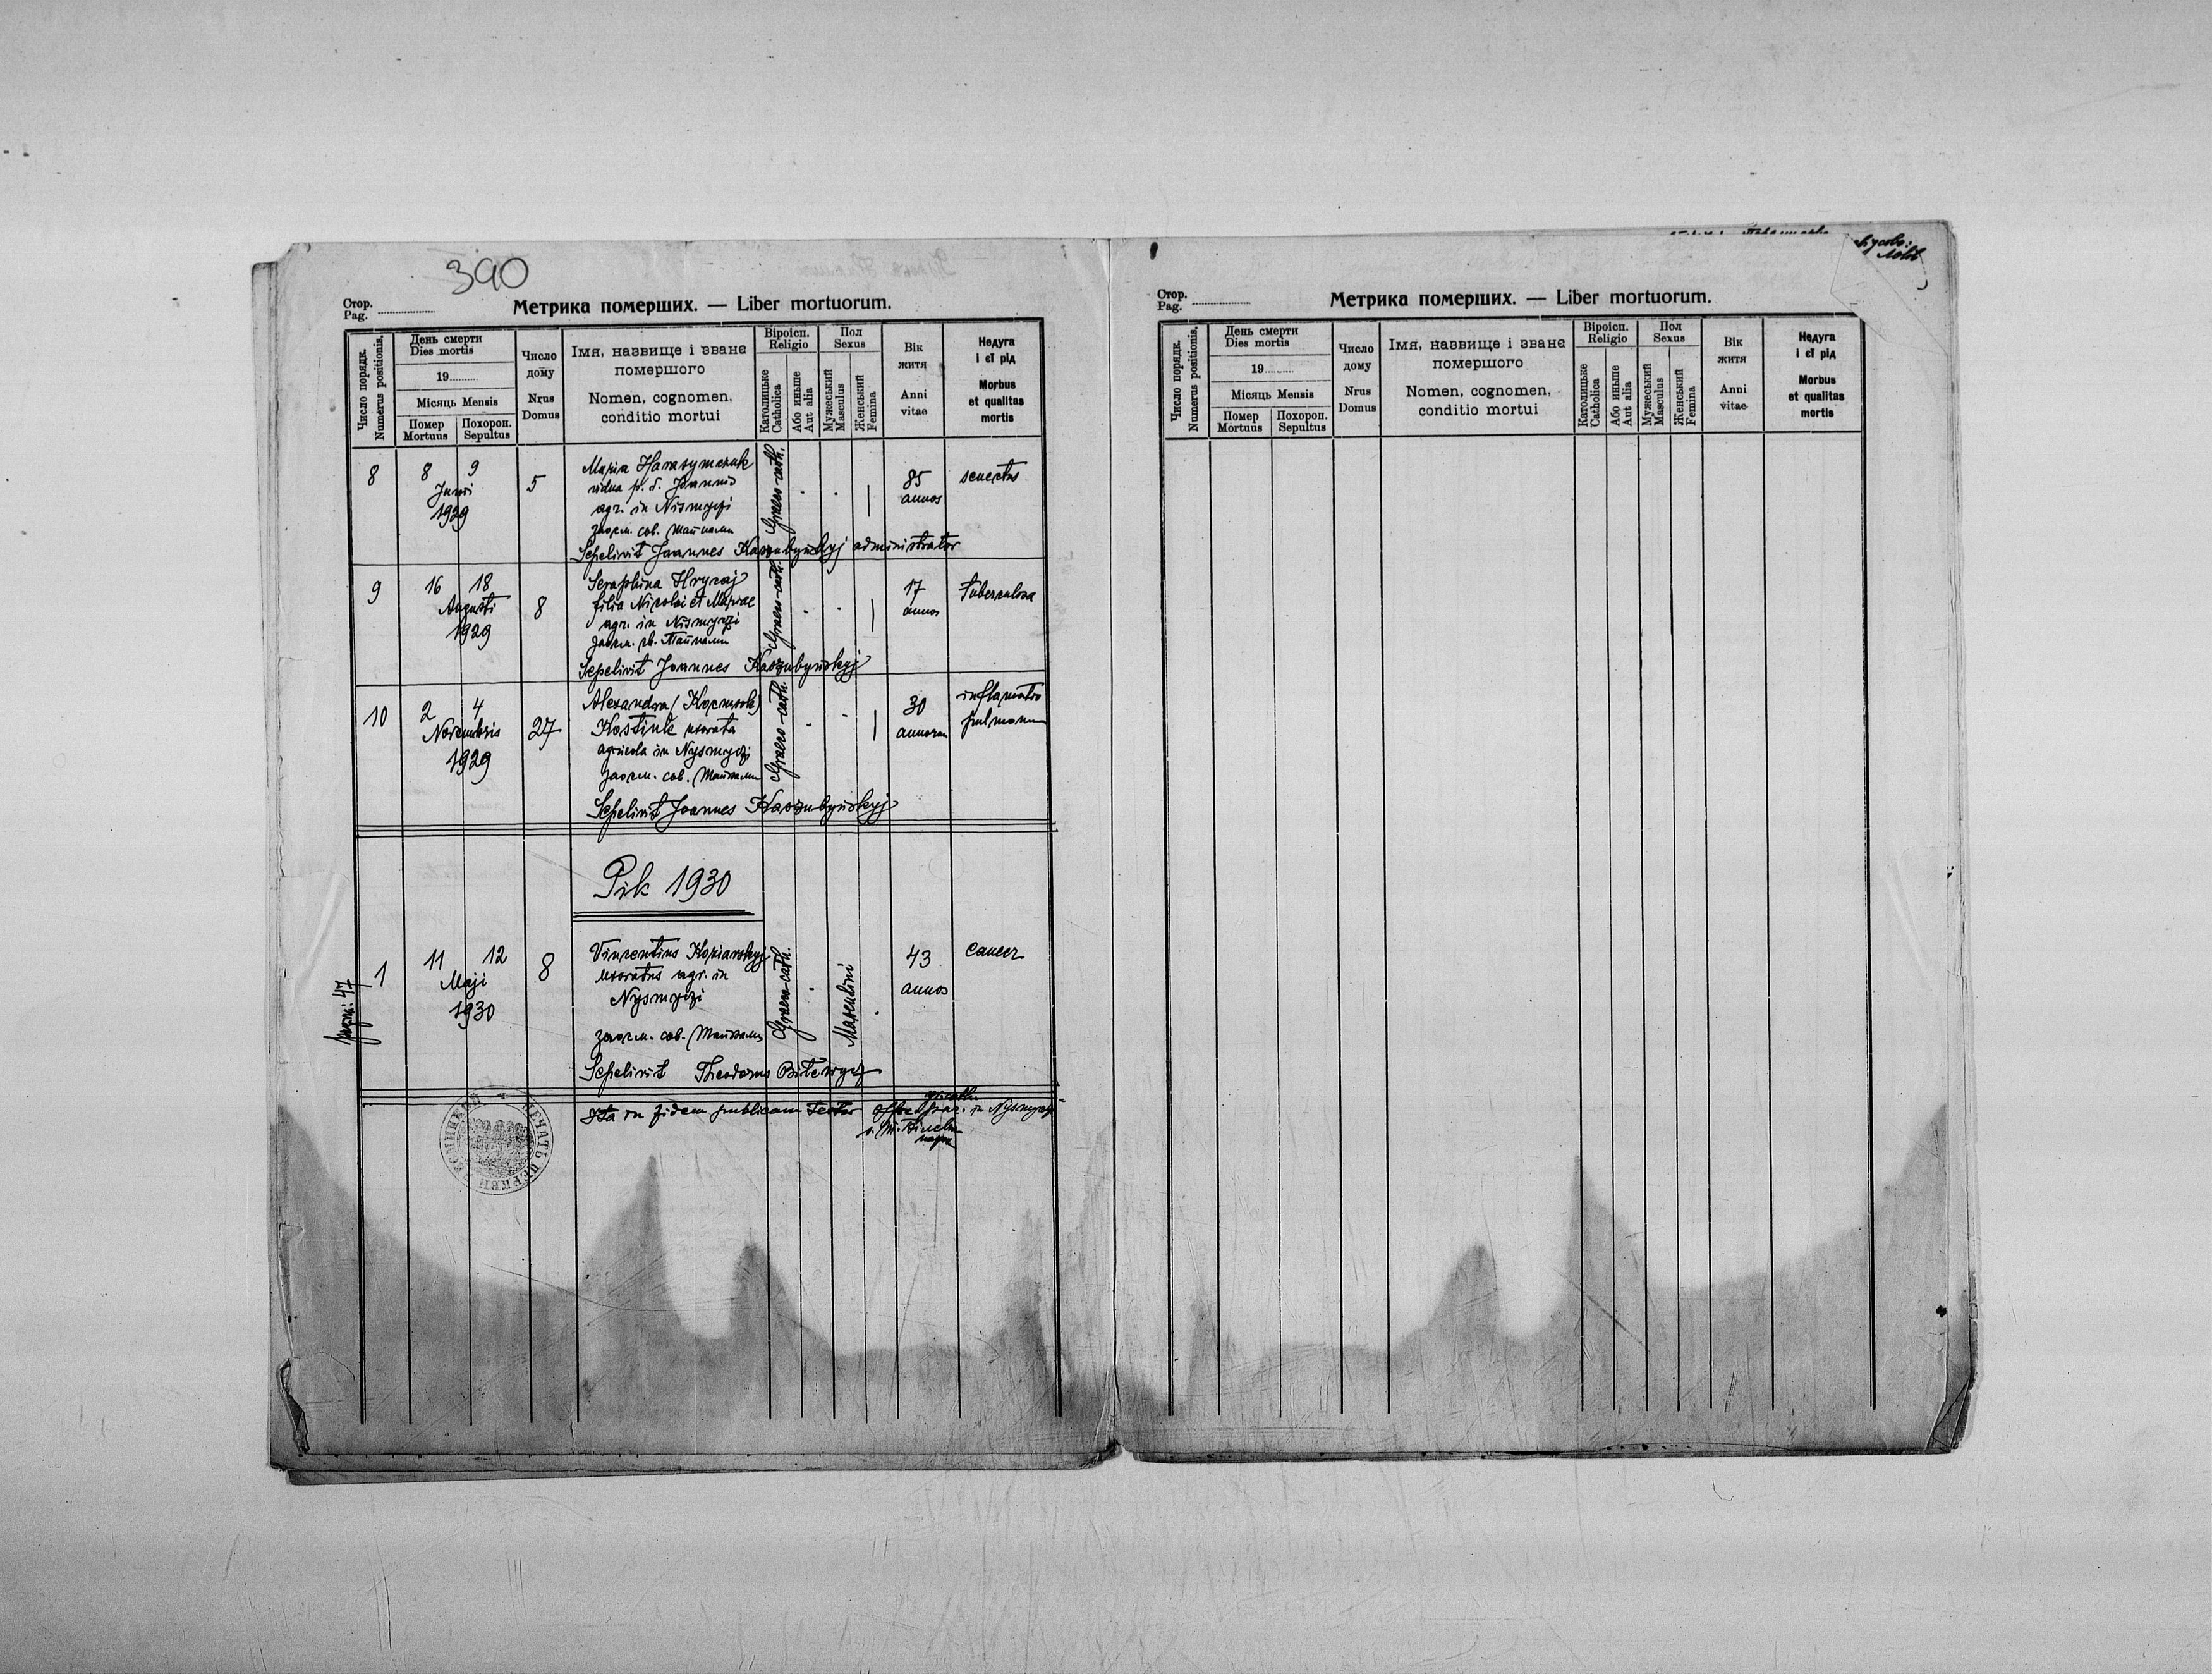 390
Стор.
Pag.
Метрика померших. — Liber mortuorum.
Число порядк.
Numerus positionis.
День смерти
Dies mortis
19
Місяць Mensis
Помер
Mortuus
Похорон.
Sepultus
Число
дому
Nrus
Domus
Імя, назвище і зване
помершого
Nomen, cognomen,
conditio mortui
Віроісп.
Religio
Католицьке
Catholica
Або иньше
Aut alia
Пол
Sexus
Мужеський
Masculus
Женський
Femina
Вік
житя
Anni
vitae
Недуга
і єї рід
Morbus
et qualitas
mortis
8
8 9
Junii
1929
5
Maria Harasymczuk
vidua p. d. Joannis
agr. in Nismyczi
заосм. св. Тайнами
Sepelivit Joannes Kaszubynskyj administrator
Graeco-cath.
85
annos
senectus
9
16 18
Augusti
1929
8
Seraphina Hrycaj
filia Nicolai et Mariae
agr. in Nismyczi
заосм. св. Тайнами
Sepelivit Joannes Kaszubynśkyj
Graeco-cath.
17
annos
tuberculosa
10
2 4
Novembris
1929
27
Alexandra
Kostiuk uxorata
agricola in Nysmyczi
заосм. св. Тайнами
Sepelivit Joannes Kaszubynśkyj
Graeco-cath.
30
annorum
inflamatio
pulmonum
Рік 1930
1
11 12
Maji
1930
8
Vincentius
uxoratus agr. in
Nysmyczi
заосм. св. Тайнами
Sepelivit Theodorus
Graeco-cath.
Masculini
43
annos
cancer
47
Ita in fidem publicam testor in Nysmyczi
ПЕЧАТЬ ЦЕРКВИ
Стор.
Pag.
Метрика померших. — Liber mortuorum.
Число порядк.
Numerus positionis.
День смерти
Dies mortis
19
Місяць Mensis
Помер
Mortuus
Похорон.
Sepultus
Число
дому
Nrus
Domus
Імя, назвище і зване
помершого
Nomen, cognomen,
conditio mortui
Віроісп.
Religio
Католицьке
Catholica
Або иньше
Aut alia
Пол
Sexus
Мужеський
Masculus
Женський
Femina
Вік
житя
Anni
vitae
Недуга
і єї рід
Morbus
et qualitas
mortis